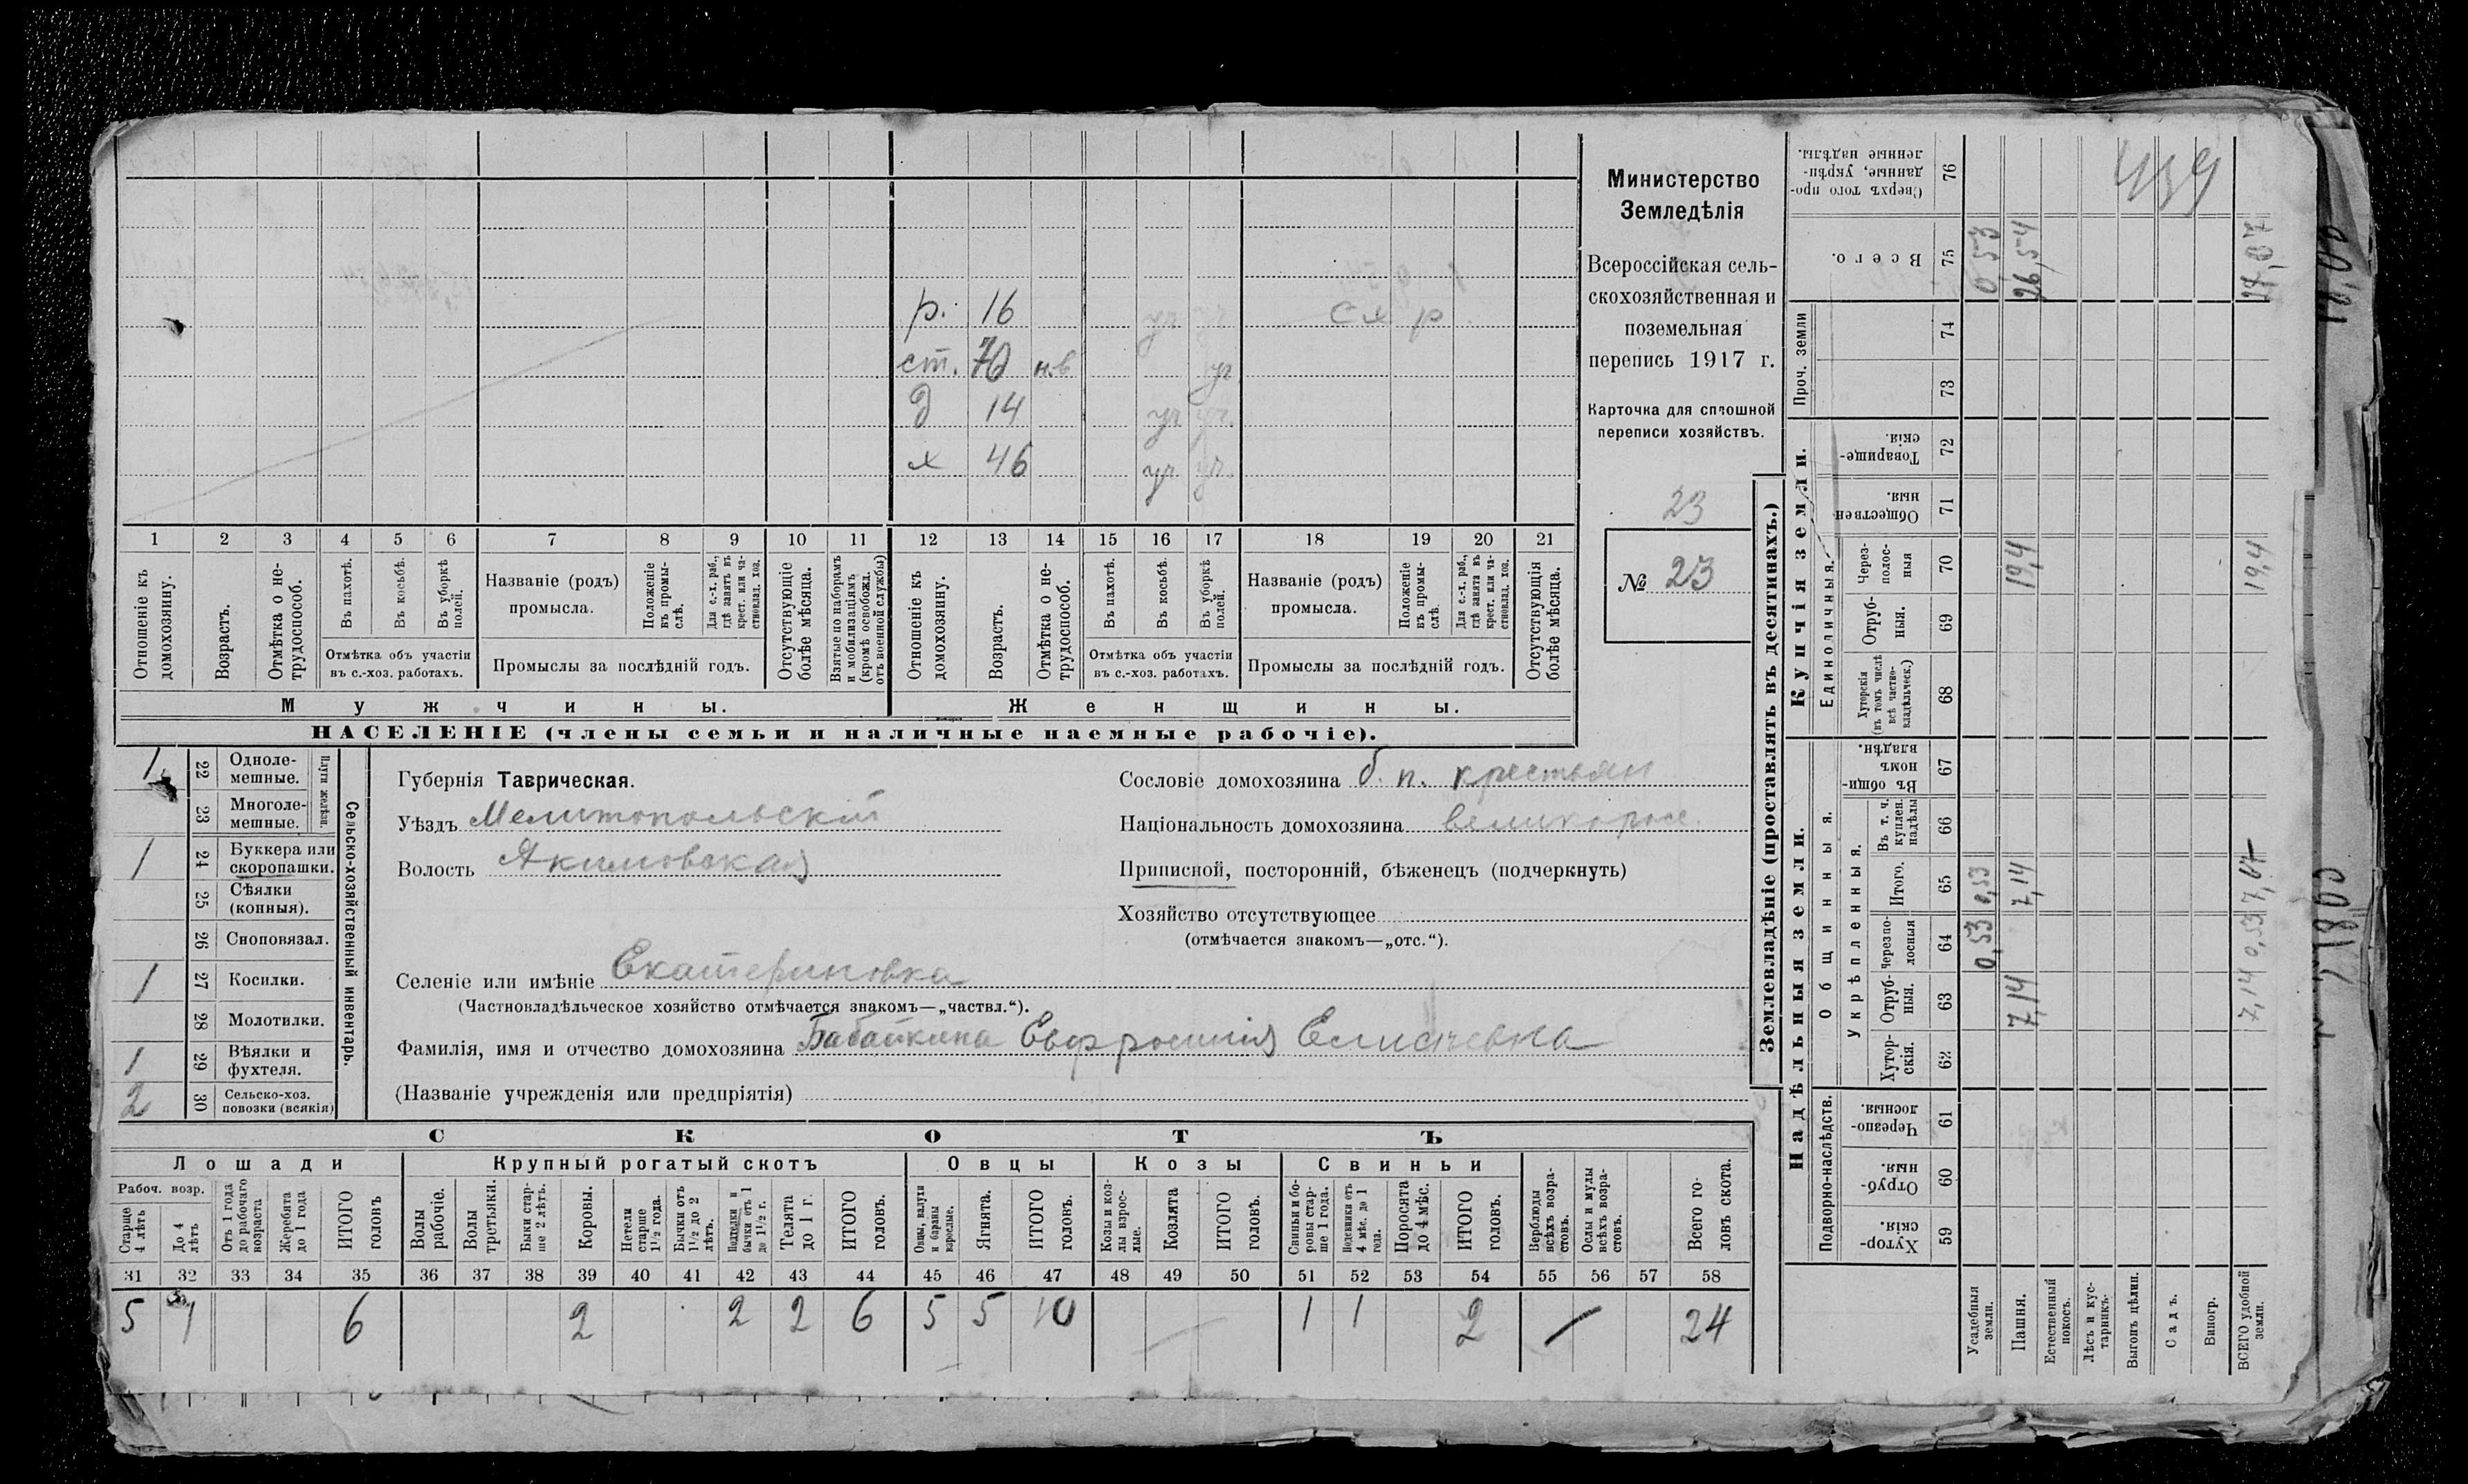 р. 16 уч уч с х р
ст. 70 н.в уч
д 14 уч уч.
х 46 уч. уч.
1 2 3 4 5 6 7 8 9 10 11 12 13 14 15 16 17 18 19 20 21
Отношеніе къ домохозяину.
Возрастъ.
Отмѣтка о не-трудоспособ.
Въ пахотѣ.
Въ косьбѣ.
Въ уборкѣ полей.
Отмѣтка объ участіи въ с.-хоз. работахъ.
Названіе (родъ) промысла.
Положеніе въ промы-слѣ.
Для с.-х. раб., гдѣ занятъ въ крест. или ча-стновлад. хоз.
Промыслы за послѣдній годъ.
Отсутствующіе болѣе мѣсяца.
Взятые по наборамъ и мобилизаціямъ (кромѣ освобожд. отъ военной службы)
Отношеніе къ домохозяину.
Возрастъ.
Отмѣтка о не-трудоспособ.
Въ пахотѣ.
Въ косьбѣ.
Въ уборкѣ полей.
Отмѣтка объ участіи въ с.-хоз. работахъ.
Названіе (родъ) промысла.
Положеніе въ промы-слѣ.
Для с.-х. раб., гдѣ занята въ крест. или ча-стновлад. хоз.
Промыслы за послѣдній годъ.
Отсутствующія болѣе мѣсяца.
Мужчины.
Женщины.
НАСЕЛЕНІЕ (члены семьи и наличные наемные рабочіе).
Министерство
Земледѣлія
Всероссійская сель-
скохозяйственная и
поземельная
перепись 1917 г.
Карточка для сплошной
переписи хозяйствъ.
23
№ 23
1 22 Одноле-мешные.
23 Многоле-мешные.
Плуги желѣзн.
1 24 Буккера или скоропашки.
25 Сѣялки (конныя).
26 Сноповязал.
1 27 Косилки.
28 Молотилки.
1 29 Вѣялки и фухтеля.
2 30 Сельско-хоз. повозки (всякія)
Сельско-хозяйственный инвентарь.
Губернія Таврическая.
Уѣздъ Мелитопольскій
Волость Акимовская
Сословіе домохозяина б. п. крестьян
Національность домохозяина великоросс.
Приписной, посторонній, бѣженецъ (подчеркнуть)
Хозяйство отсутствующее
(отмѣчается знакомъ—„отс.“).
Селеніе или имѣніе Екатериновка
(Частновладѣльческое хозяйство отмѣчается знакомъ—„частвл.“).
Фамилія, имя и отчество домохозяина Бабайкина Евфросинія Елисеевна
(Названіе учрежденія или предпріятія)
СКОТЪ
Лошади
Крупный рогатый скотъ
Овцы
Козы
Свиньи
Рабоч. возр.
Старше 4 лѣтъ
До 4 лѣтъ
Отъ 1 года до рабочаго возраста
Жеребята до 1 года
ИТОГО головъ
Волы рабочіе.
Волы третьяки.
Быки стар-ше 2 лѣтъ.
Коровы.
Нетели старше 1½ года.
Бычки отъ 1½ до 2 лѣтъ.
Подтелки и бычки отъ 1 до 1½ г.
Телята до 1 г.
ИТОГО головъ.
Овцы, валухи и бараны взрослые.
Ягнята.
ИТОГО головъ.
Козы и коз-лы взрос-лые.
Козлята
ИТОГО головъ.
Свиньи и бо-ровы стар-ше 1 года.
Подсвинки отъ 4 мѣс. до 1 года.
Поросята до 4 мѣс.
ИТОГО головъ.
Верблюды всѣхъ возра-стовъ.
Ослы и мулы всѣхъ возра-стовъ.
Всего го-ловъ скота.
31 32 33 34 35 36 37 38 39 40 41 42 43 44 45 46 47 48 49 50 51 52 53 54 55 56 57 58
5 1 6 2 2 2 6 5 5 10 — 1 1 2 — 24
Землевладѣніе (проставлять въ десятинахъ.)
Надѣльныя земли.
Купчія земли.
Подворно-наслѣдств.
Общинныя.
Укрѣпленныя.
Единоличныя.
Проч. земли
59 Хутор-скія.
60 Отруб-ныя.
61 Черезпо-лосныя.
62 Хутор-скія.
63 Отруб-ныя.
64 Черезпо-лосныя
65 Итого.
66 Въ т. ч. куплен. надѣлы
67 Въ общи-номъ владѣн.
68 Хуторскія (въ томъ числѣ всѣ частно-владѣльческ.)
69 Отруб-ныя.
70 Через-полос-ныя
71 Обществен-ныя.
72 Товарище-скія.
73
74
75 Всего.
76 Сверхъ того про-данные, укрѣп-ленные надѣлы.
Усадебныя земли. 0,53 0,53 0,53
Пашня. 7,14 7,14 19,4 26,54
Естественный покосъ.
Лѣсъ и кус-тарникъ.
Выгонъ цѣлин.
Садъ.
Виногр.
ВСЕГО удобной земли. 7,14 0,53 7,67 19,4 27,07